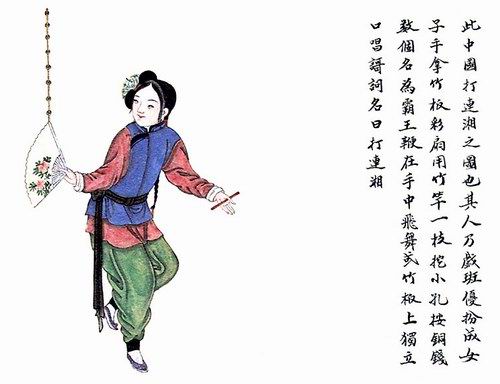 此中國打連湘之圖也其人乃戲班優扮成女
子手拿竹板彩扇用竹竿一枝挖小孔按銅錢
数個名為霸王鞭在手中飛舞或竹板上獨立
口唱謌詞名曰打連湘